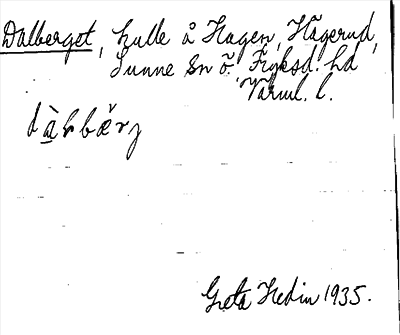 Dalberget, kulle å Hagen, Hågerud,
Sunne sn ö. Fryksd. hd
Värml. l.
Greta Hedin 1935.